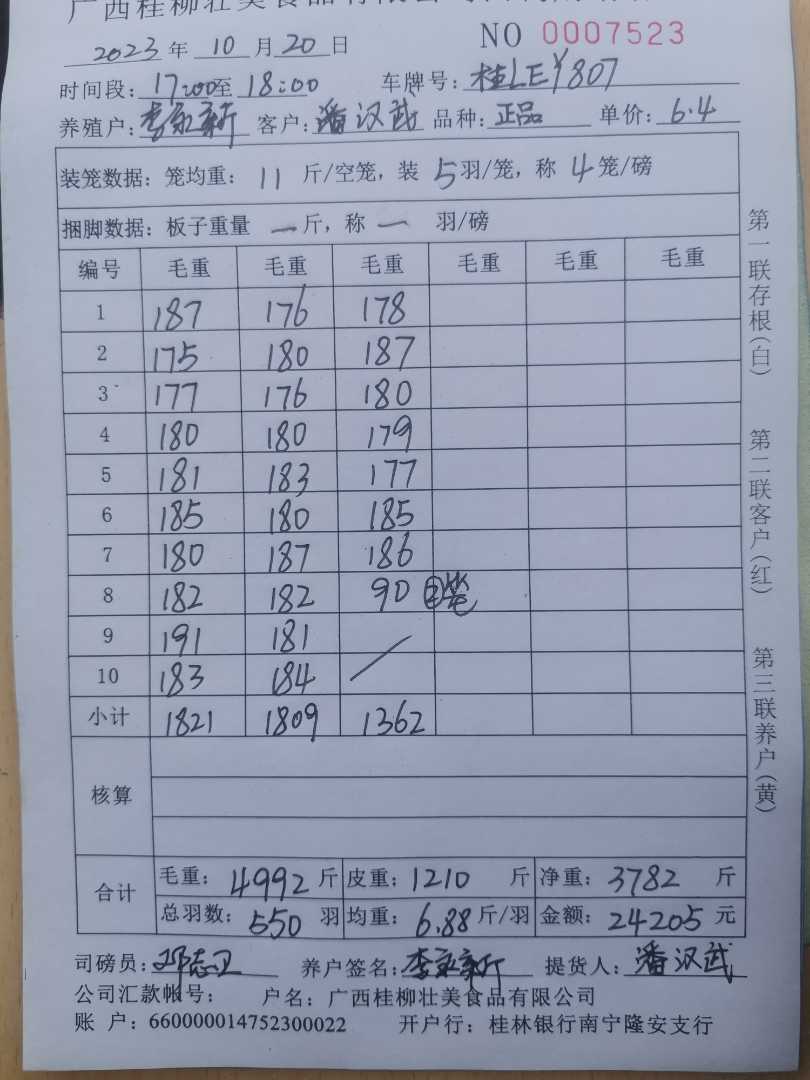 广西桂柳壮美食品有限公司
2023 年 10 月 20 日 NO 0007523
时间段: 17:00 至 18:00 车牌号: 桂LEY807
养殖户: 李 新 客户: 潘汉武 品种: 正品 单价: 6.4
装笼数据: 笼均重: 11 斤/空笼, 装 5 羽/笼, 称 4 笼/磅
捆脚数据: 板子重量 一 斤, 称 一 羽/磅
编号 毛重 毛重 毛重 毛重 毛重 毛重
1 187 176 178
2 175 180 187
3 177 176 180
4 180 180 179
5 181 183 177
6 185 180 185
7 180 187 186
8 182 182 90 笼
9 191 181
10 183 184
小计 1821 1809 1362
核算
合计 毛重: 4992 斤 皮重: 1210 斤 净重: 3782 斤
总羽数: 550 羽 均重: 6.88 斤/羽 金额: 24205 元
司磅员: 邓志卫 养户签名: 李 新 提货人: 潘汉武
公司汇款帐号: 户名: 广西桂柳壮美食品有限公司
账 户: 660000014752300022 开户行: 桂林银行南宁隆安支行
第一联存根(白)
第二联客户(红)
第三联养户(黄)